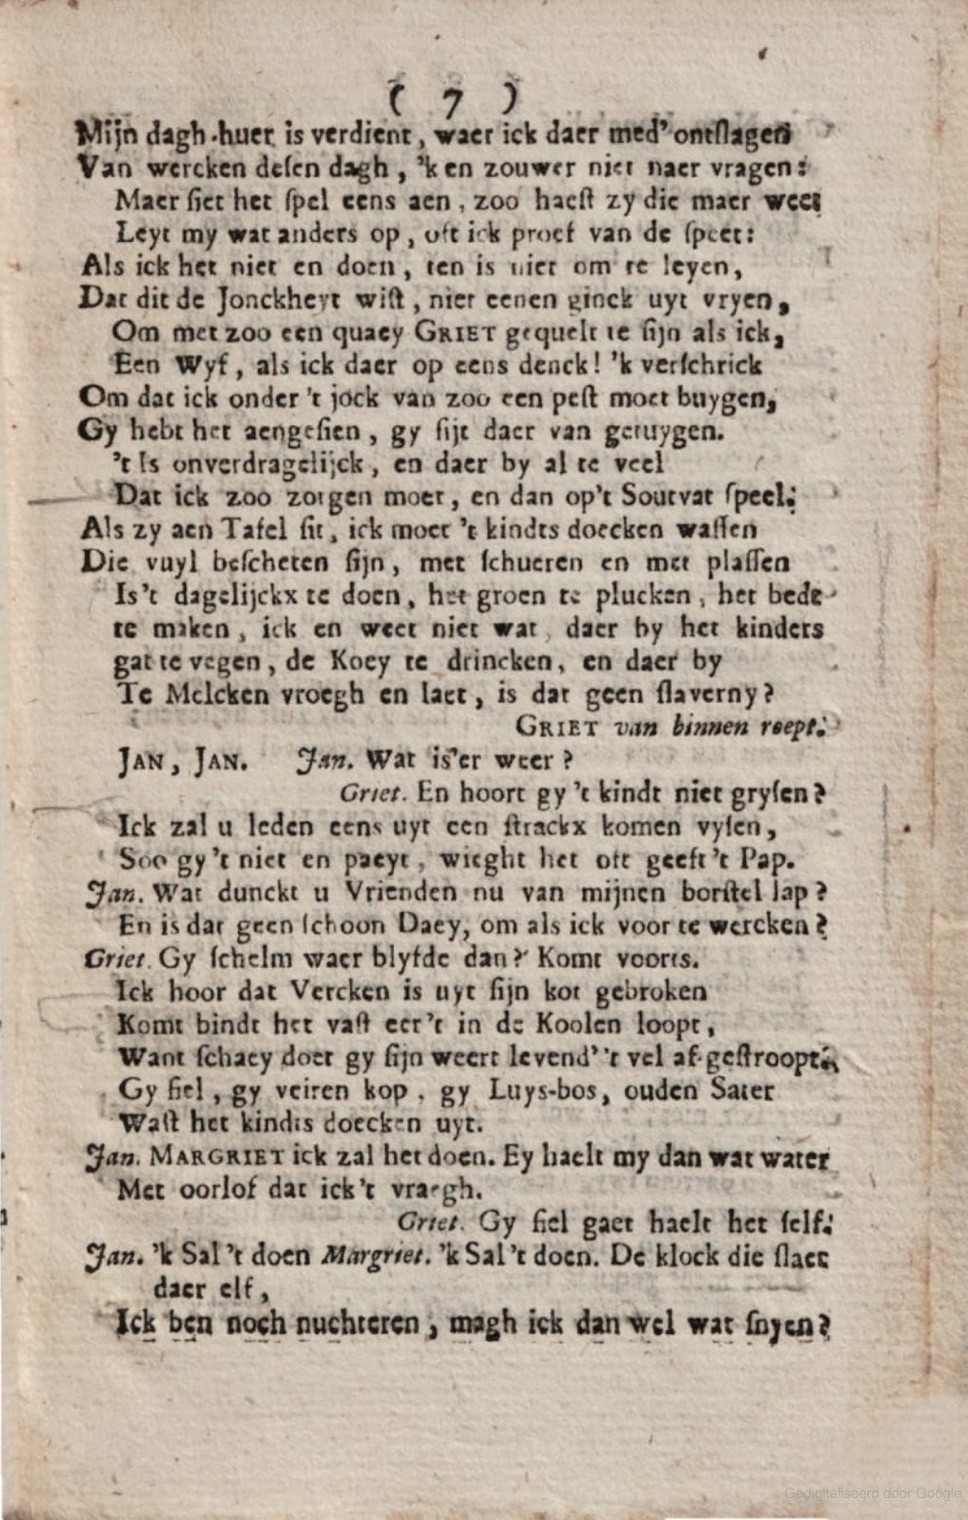 ( 7 )
Mijn dagh-huer is verdient, waer ick daer med' ontſlagen
Van wercken deſen dagh, 'k en zouwer niet naer vragen:
Maer ſiet het ſpel eens aen, zoo haeſt zy die maer weet
Leyt my wat anders op, oft ick proef van de ſpeet:
Als ick het niet en doen, ten is niet om te leyen,
Dat dit de Jonckheyt wiſt, niet eenen ginck uyt vryen,
Om met zoo een quaey GRIET gequelt te ſijn als ick,
Een Wyf, als ick daer op eens denck! 'k verſchrick
Om dat ick onder 't jock van zoo een peſt moet buygen,
Gy hebt het aengeſien, gy ſijt daer van getuygen.
't Is onverdragelijck, en daer by al te veel
Dat ick zoo zorgen moet, en dan op't Soutvat ſpeel:
Als zy aen Tafel ſit, ick moet 't kindts doecken waſſen
Die vuyl beſcheten ſijn, met ſchueren en met plaſſen
Is't dagelijckx te doen, het groen te plucken, het bedt
te maken, ick en weet niet wat, daer by het kinders
gat te vegen, de Koey te drincken, en daer by
Te Melcken vroegh en laet, is dat geen ſlaverny?
GRIET van binnen roept:
JAN, JAN. Jan. Wat is'er weer?
Griet. En hoort gy 't kindt niet gryſen?
Ick zal u leden eens uyt een ſtrackx komen vyſen,
Soo gy't niet en paeyt, wieght het oft geeft 't Pap.
Jan. Wat dunckt u Vrienden nu van mijnen borſtel lap?
En is dat geen ſchoon Daey, om als ick voor te wercken?
Griet. Gy ſchelm waer blyfde dan? Komt voorts.
Ick hoor dat Vercken is uyt ſijn kot gebroken
Komt bindt het vaſt eer't in de Koolen loopt,
Want ſchaey doet gy ſijn weert levend' 't vel af-geſtroopt.
Gy fiel, gy veiren kop, gy Luys-bos, ouden Sater
Waſt het kindts doecken uyt.
Jan. MARGRIET ick zal het doen. Ey haelt my dan wat water
Met oorlof dat ick't vraegh.
Griet. Gy fiel gaet haelt het ſelf:
Jan. 'k Sal 't doen Margriet. 'k Sal 't doen. De klock die ſlaet
daer elf,
Ick ben noch nuchteren, magh ick dan wel wat ſnyen?
Gedigitaliseerd door Google